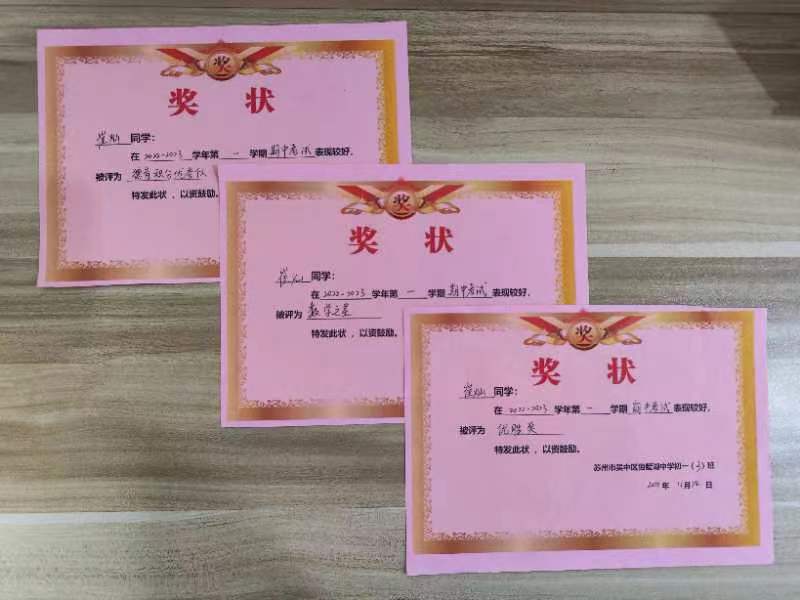 奖
奖 状
崔灿 同学：
在 2022-2023 学年第 一 学期 期中考试 表现较好，
被评为
特发此状，以资鼓励。
奖
奖 状
崔灿 同学：
在 2022-2023 学年第 一 学期 期中考试 表现较好，
被评为 数学之星
特发此状，以资鼓励。
奖
奖 状
崔灿 同学：
在 2022-2023 学年第 一 学期 期中考试 表现较好，
被评为 优胜奖
特发此状，以资鼓励。
苏州市吴中区 中学初一（3）班
年 11月 日